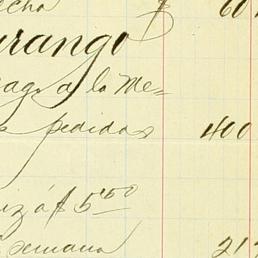 echa $ 60
urango
ago a la Me=
s pedidas 400
iz á $ 5.50
semana 21